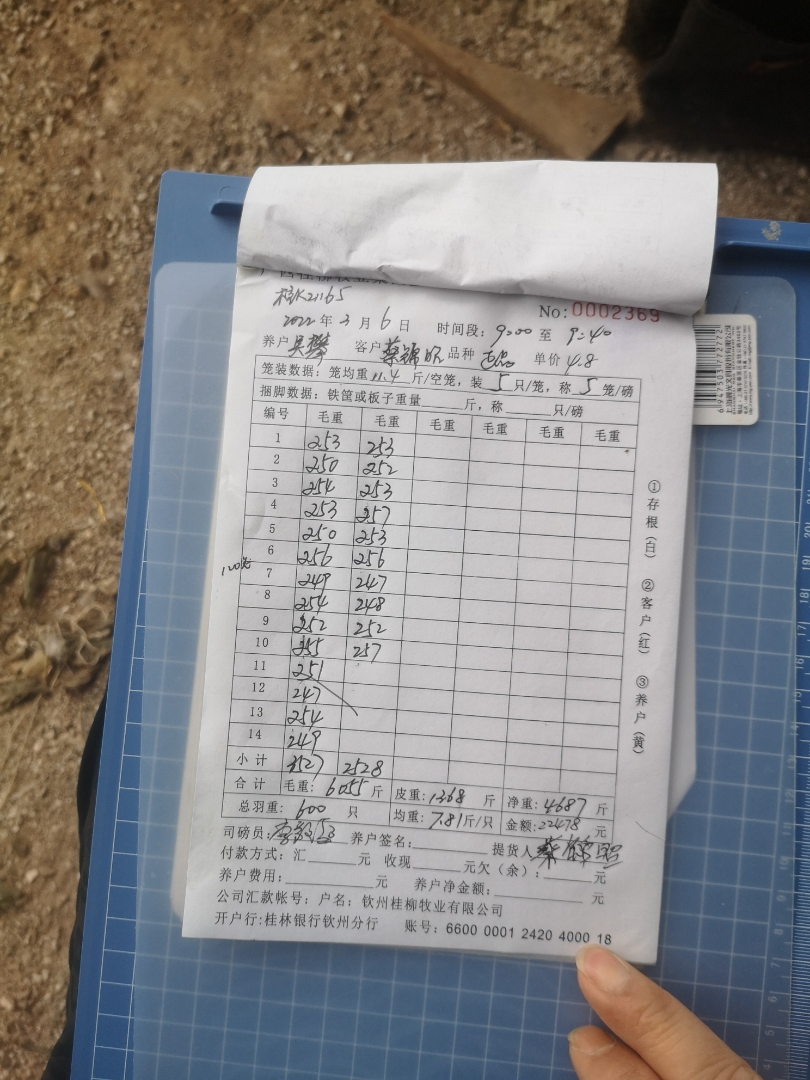 No:0002369
2022年3月6日 时间段:9:00至9:40
养户吴攀 客户蔡锦 品种 单价4.8
笼装数据:笼均重11.4斤/空笼,装5只/笼,称5笼/磅
捆脚数据:铁筐或板子重量____斤,称____只/磅
编号 毛重 毛重 毛重 毛重 毛重 毛重
1 253 253
2 250 252
3 254 253
4 253 257
5 250 253
6 256 256
7 249 247
8 254 248
9 252 252
10 255 257
11 251
12 247
13 254
14 249
小计 3527 2528
合计 毛重:6055斤 皮重:1368斤 净重:4687斤
总羽重:600只 均重:7.81斤/只 金额:22478元
司磅员: 养户签名:____ 提货人
付款方式:汇____元 收现____元欠(余):____元
养户费用:____元 养户净金额:____元
公司汇款帐号:户名:钦州桂柳牧业有限公司
开户行:桂林银行钦州分行 账号:6600 0001 2420 4000 18
①存根(白) ②客户(红) ③养户(黄)